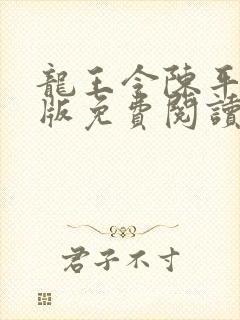 龍王令陳平
版免費閱讀
君子不才